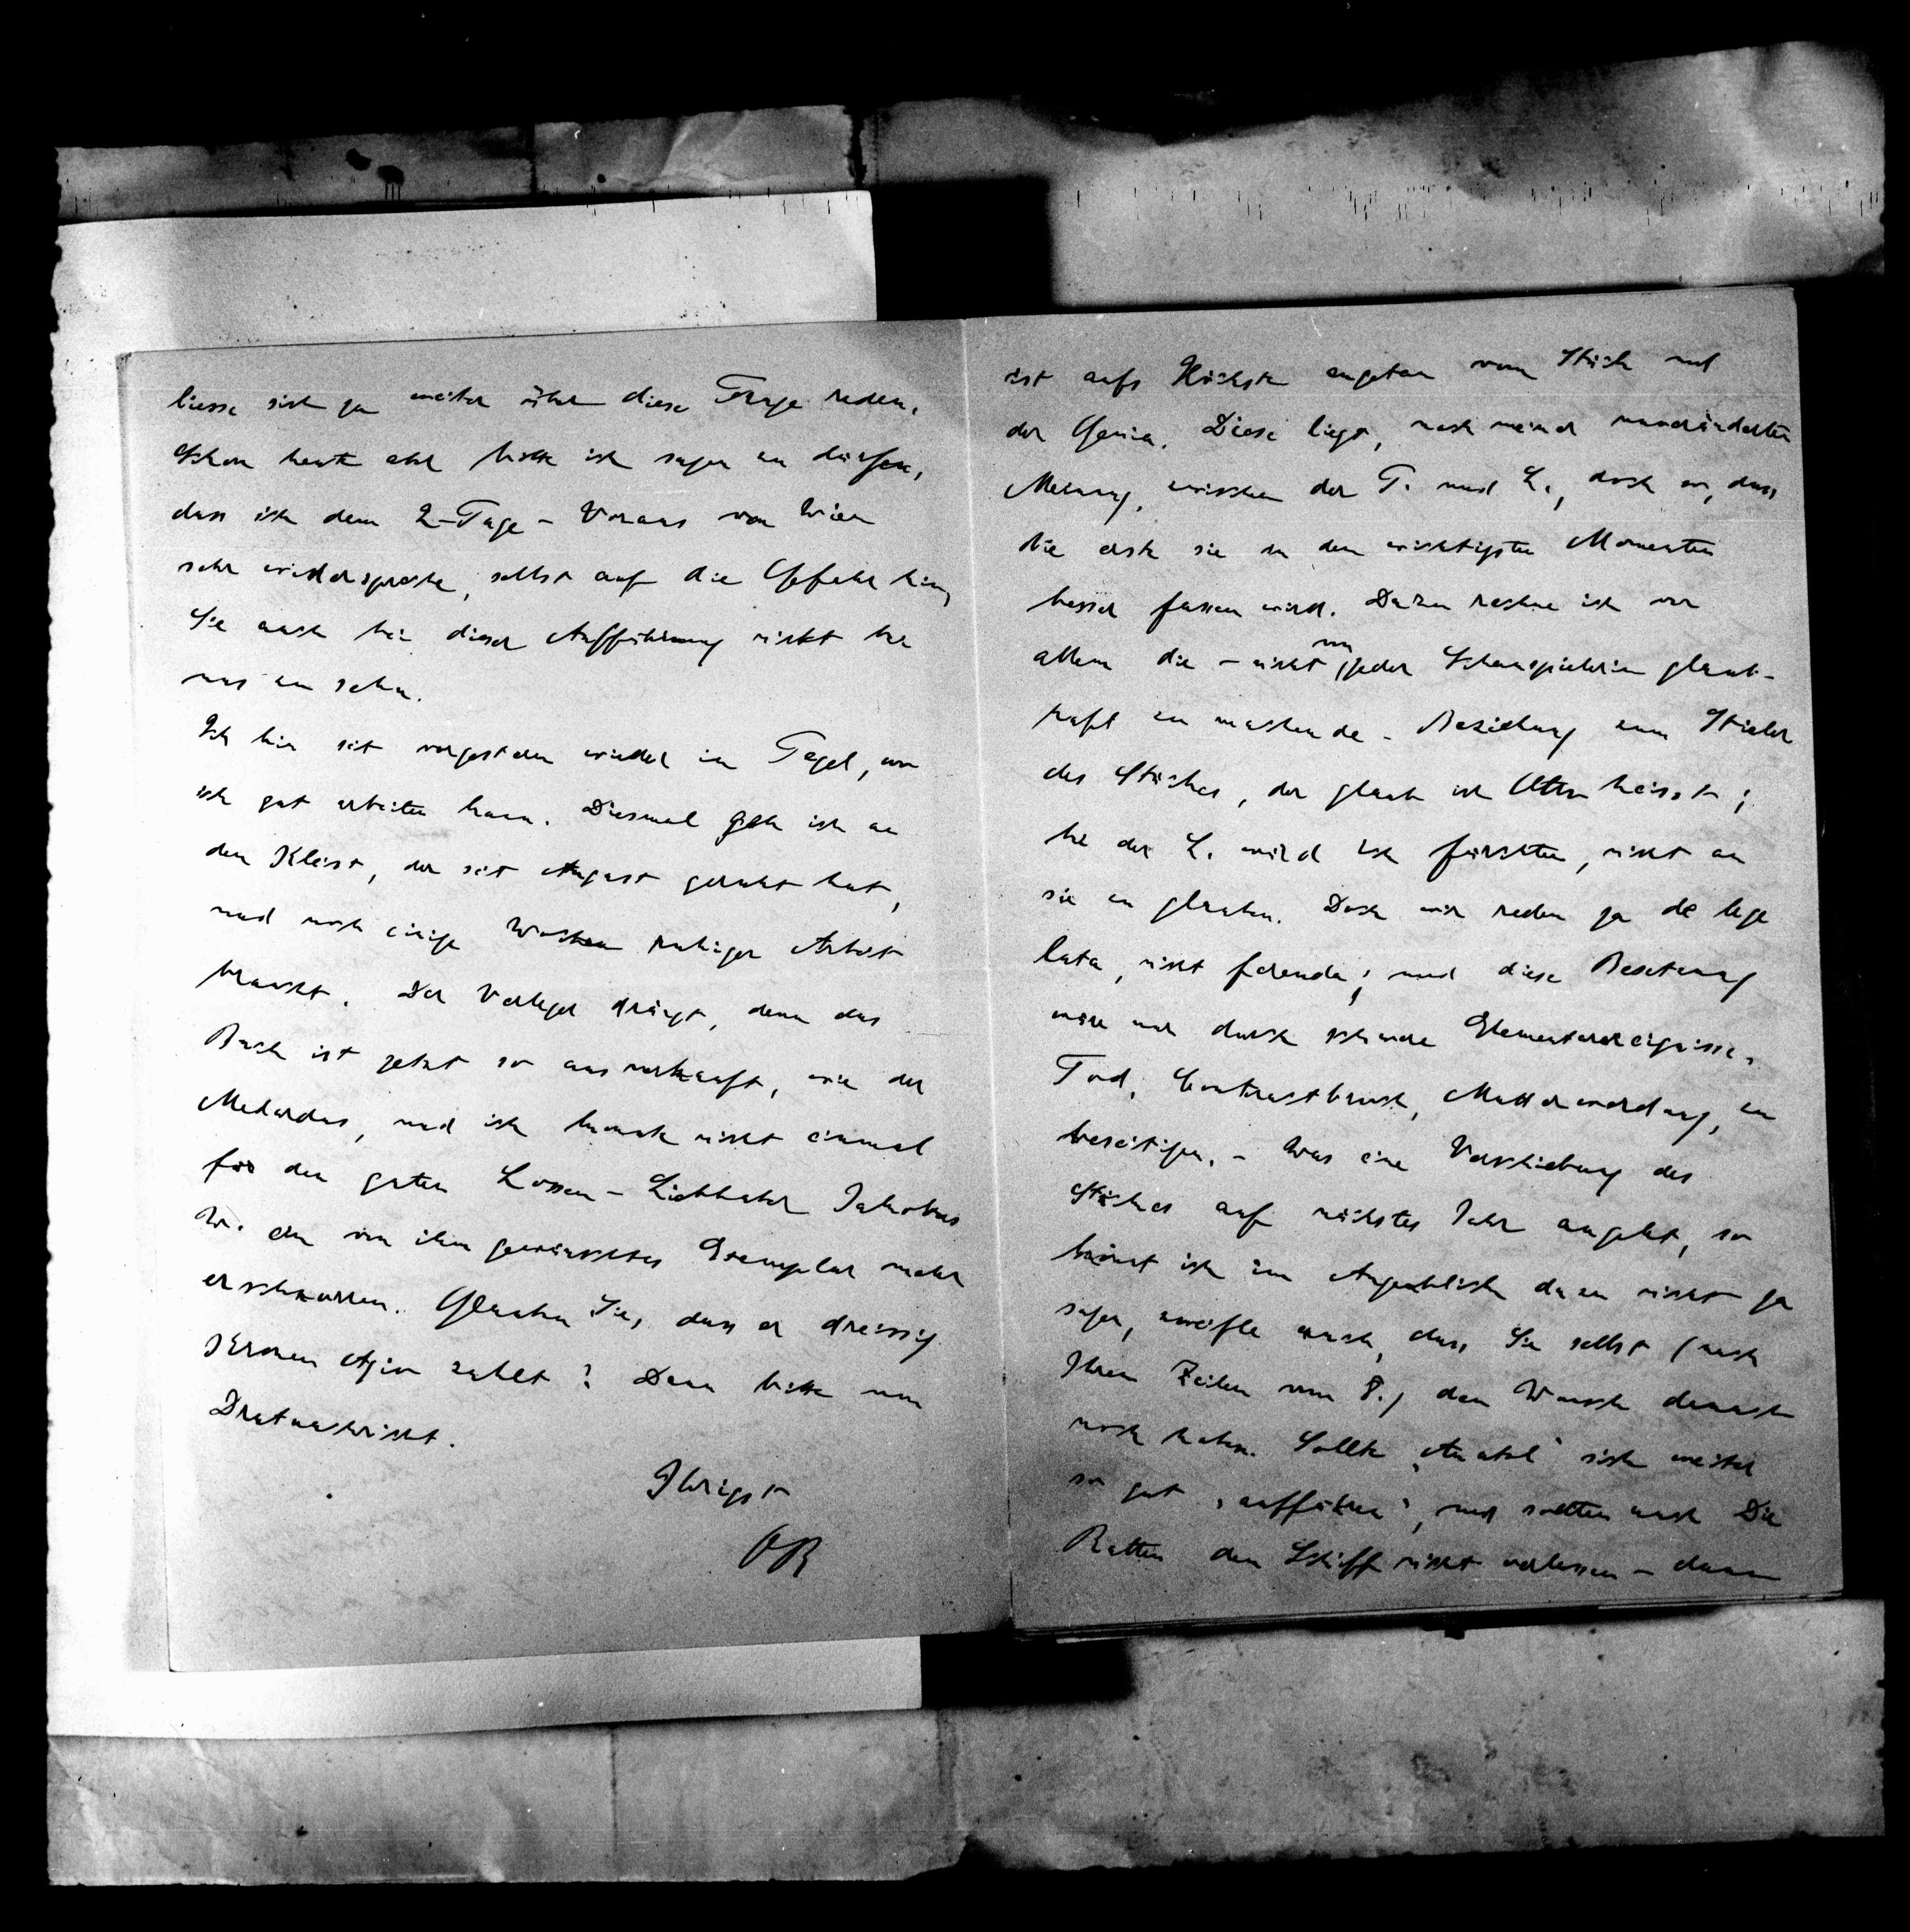 ist aufs Höchste angetan vom Stück und
der Genia. Diese liegt, nach meiner unveränderten
Meinung, zwischen der T. und L., doch so, dass
die erste sie in den wichtigsten Momenten
besser fassen wird. Dazu rechne ich vor
allem die – nicht von jeder Schauspielerin glaub-
haft zu machende – Beziehung zum Stieler
des Stückes, der glaub ich Otto heisst;
bei der L. würd ich fürchten, nicht an
sie zu glauben. Doch wir reden ja de lege
lata, nicht ferenda; und diese Besetzung
wäre nur durch schwere Elementarereignisse,
Tod, Contractbruch, Mutterwerdung, zu
beseitigen. – Was eine Verschiebung des
Stückes auf nächstes Jahr angeht, so
könnt ich im Augenblick dazu nicht ja
sagen, zweifle auch, dass Sie selbst (nach
Ihren Zeilen vom 8.) den Wunsch danach
noch haben. Sollte „Anatol“ sich weiter
so gut „aufführen“, und sollten auch Die
Ratten den Schiff nicht verlassen – dann
liesse sich ja weiter über diese Frage reden.
Schon heute aber bitte ich sagen zu dürfen,
dass ich dem 2-Tage-Voraus von Wien
sehr widerspreche, selbst auf die Gefahr hin,
Sie auch bei dieser Aufführung nicht bei
uns zu sehn.
Ich bin seit vorgestern wieder in Tegel, wo
ich gut arbeiten kann. Diesmal geh ich an
den Kleist, der seit August geruht hat,
und noch einige Wochen ruhiger Arbeit
braucht. Der Verleger drängt, denn das
Buch ist jetzt so ausverkauft, wie der
Medardus, und ich konnte nicht einmal
für den guten Lossen-Liebhaber Jakobus
W. ein von ihm gewünschtes Exemplar mehr
erschnorren. Glauben Sie, dass er dreissig
Kronen Agio zahlt? Dann bitte um
Dratnachricht.
Ihrigst
OB